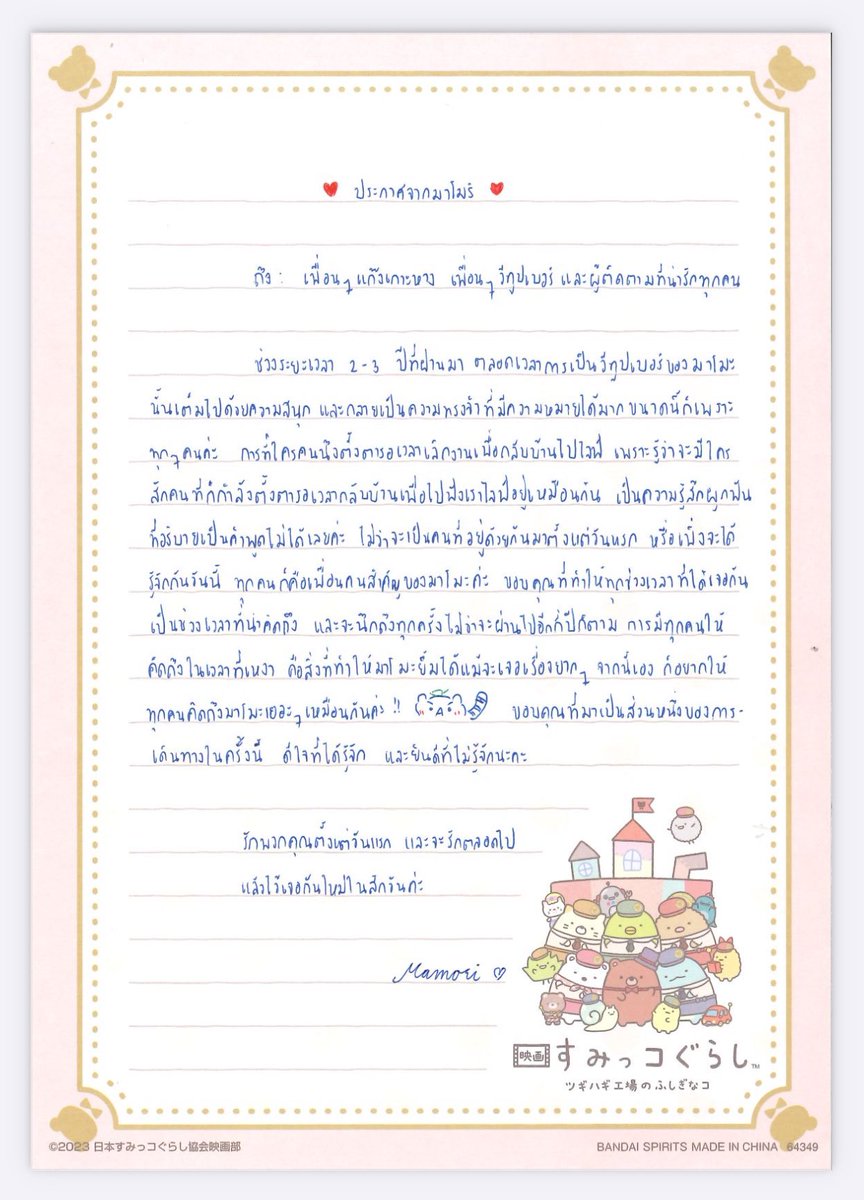 ประกาศจากมาโมริ
ถึง : เพื่อนๆ แก๊งเกาะหาง เพื่อนๆ วีทูปเบอร์ และผู้ติดตามที่น่ารักทุกคน
ช่วงระยะเวลา 2-3 ปีที่ผ่านมา ตลอดเวลาการเป็นวีทูปเบอร์ของมาโมะ
นั้นเต็มไปด้วยความสนุก และกลายเป็นความทรงจำที่มีความหมายได้มากขนาดนี้ก็เพราะ
ทุกๆคนค่ะ การที่ใครคนนึงตั้งตารอเวลาเลิกงานเพื่อกลับบ้านไปไลฟ์ เพราะรู้ว่าจะมีใคร
สักคนที่ก็กำลังตั้งตารอเวลากลับบ้านเพื่อไปฟังเราไลฟ์อยู่เหมือนกัน เป็นความรู้สึกผูกพัน
ที่อธิบายเป็นคำพูดไม่ได้เลยค่ะ ไม่ว่าจะเป็นคนที่อยู่ด้วยกันมาตั้งแต่วันแรก หรือเพิ่งจะได้
รู้จักกันวันนี้ ทุกคนก็คือเพื่อนคนสำคัญของมาโมะค่ะ ขอบคุณที่ทำให้ทุกช่วงเวลาที่ได้เจอกัน
เป็นช่วงเวลาที่น่าคิดถึง และจะนึกถึงทุกครั้งไม่ว่าจะผ่านไปอีกกี่ปีก็ตาม การมีทุกคนให้
คิดถึงในเวลาที่เหงา คือสิ่งที่ทำให้มาโมะยิ้มได้แม้จะเจอเรื่องยากๆ จากนี้เอง ก็อยากให้
ทุกคนคิดถึงมาโมะเยอะๆเหมือนกันค่ะ !! ขอบคุณที่มาเป็นส่วนหนึ่งของการ-
เดินทางในครั้งนี้ ดีใจที่ได้รู้จัก และยินดีที่ไม่รู้จักนะคะ
รักพวกคุณตั้งแต่วันแรก และจะรักตลอดไป
แล้วไว้เจอกันใหม่ในสักวันค่ะ
Mamori ♡
映画 すみっコぐらし™
ツギハギ工場のふしぎなコ
©2023 日本すみっコぐらし協会映画部
BANDAI SPIRITS MADE IN CHINA 64349